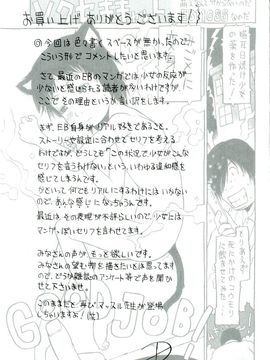 お買い上げ ありがとうございます!
◎今回は色々書くスペースが無かったので
こういう形でコメントしたいと思います。
さて、最近のEBのマンガでは少女の反応が
少ないと感じられる読者が多いわけですが
ここでその理由というか言い訳をします。
まず、EB自身がリアル好きであること。
ストーリーや設定に合わせてセリフを考える
わけですが、どうしても「この状況で少女がこんな
セリフを言うわけない」という、いわゆる違和感を
感じてしまうんです。
かといって、何でもリアルにするわけにはいかない
ので、あんな感じになっちゃうんです。
最近は、その表現が不評らしいので、少女には
マンガっぽいセリフを言わせてます。
みなさんの声が、もっと欲しいです。
みなさんの望む物を描きたいとは思ってます
ので、どうか雑誌のアンケート等で声を聞
かせて下さいませ。
このままだと 再びマッスル先生が登場
しちゃいますよ!(笑)
GOOD JOB!